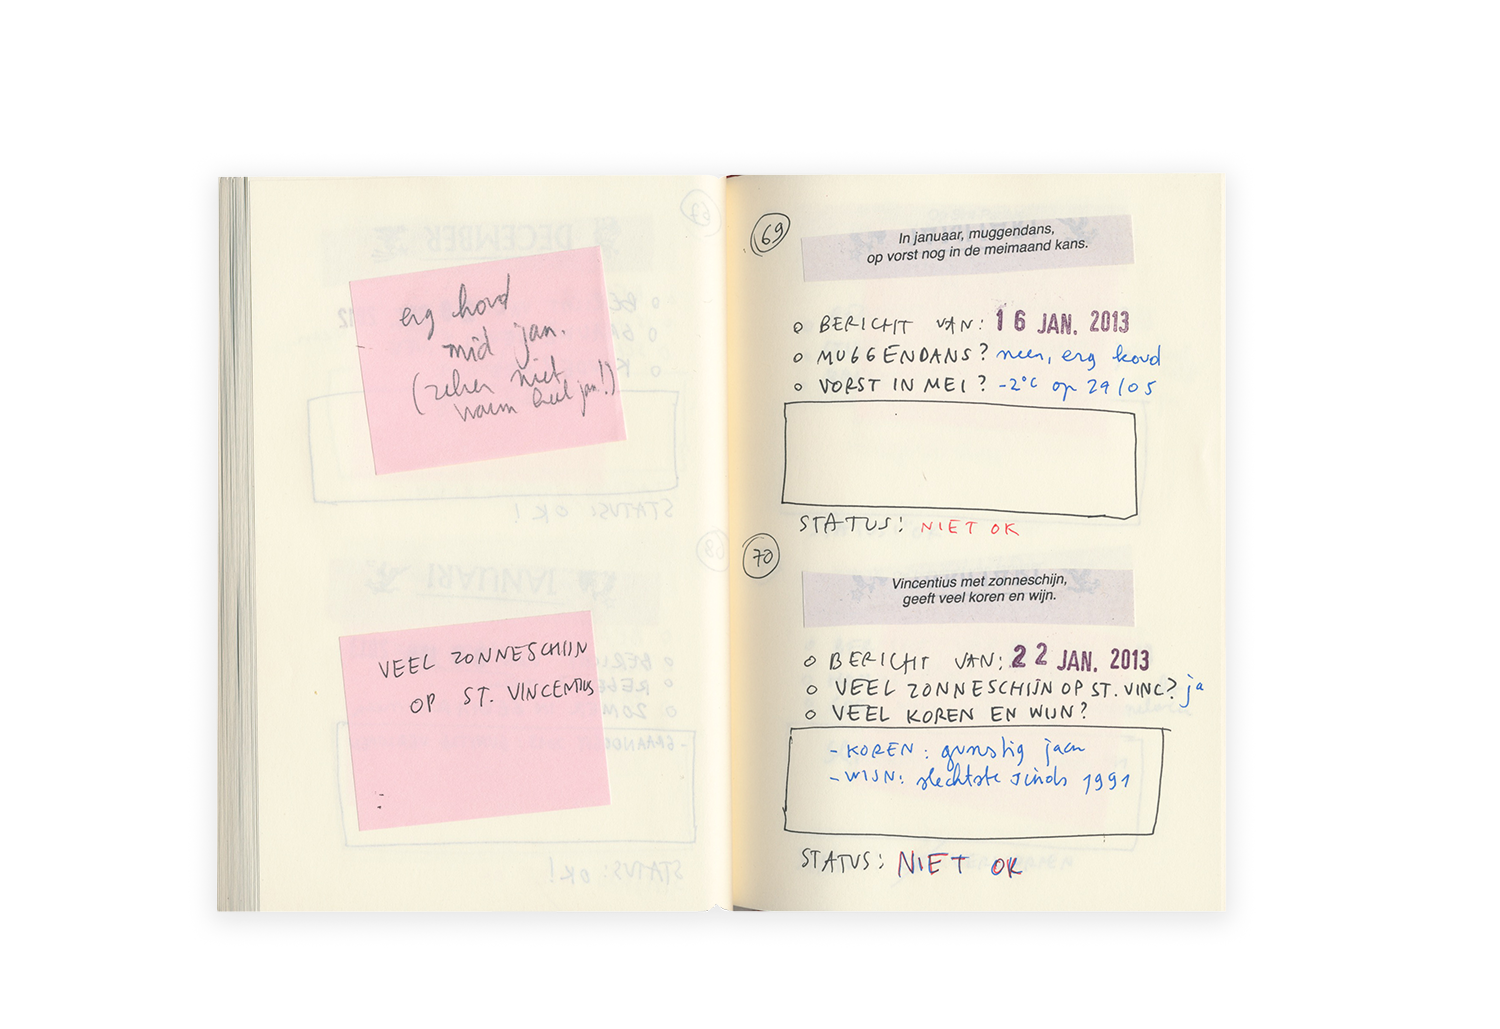 erg koud
mid jan.
(zeker niet
warm heel jan!)
VEEL ZONNESCHIJN
OP ST. VINCENTIUS
69
In januaar, muggendans,
op vorst nog in de meimaand kans.
BERICHT VAN: 16 JAN. 2013
MUGGENDANS? neen, erg koud
VORST IN MEI? -2°C op 29/05
STATUS: NIET OK
70
Vincentius met zonneschijn,
geeft veel koren en wijn.
BERICHT VAN: 22 JAN. 2013
VEEL ZONNESCHIJN OP ST. VINC? ja
VEEL KOREN EN WIJN?
- KOREN: gunstig jaar
- WIJN: slechtste sinds 1991
STATUS: NIET OK
67
DECEMBER
STATUS: OK!
68
JANUARI
STATUS: OK!